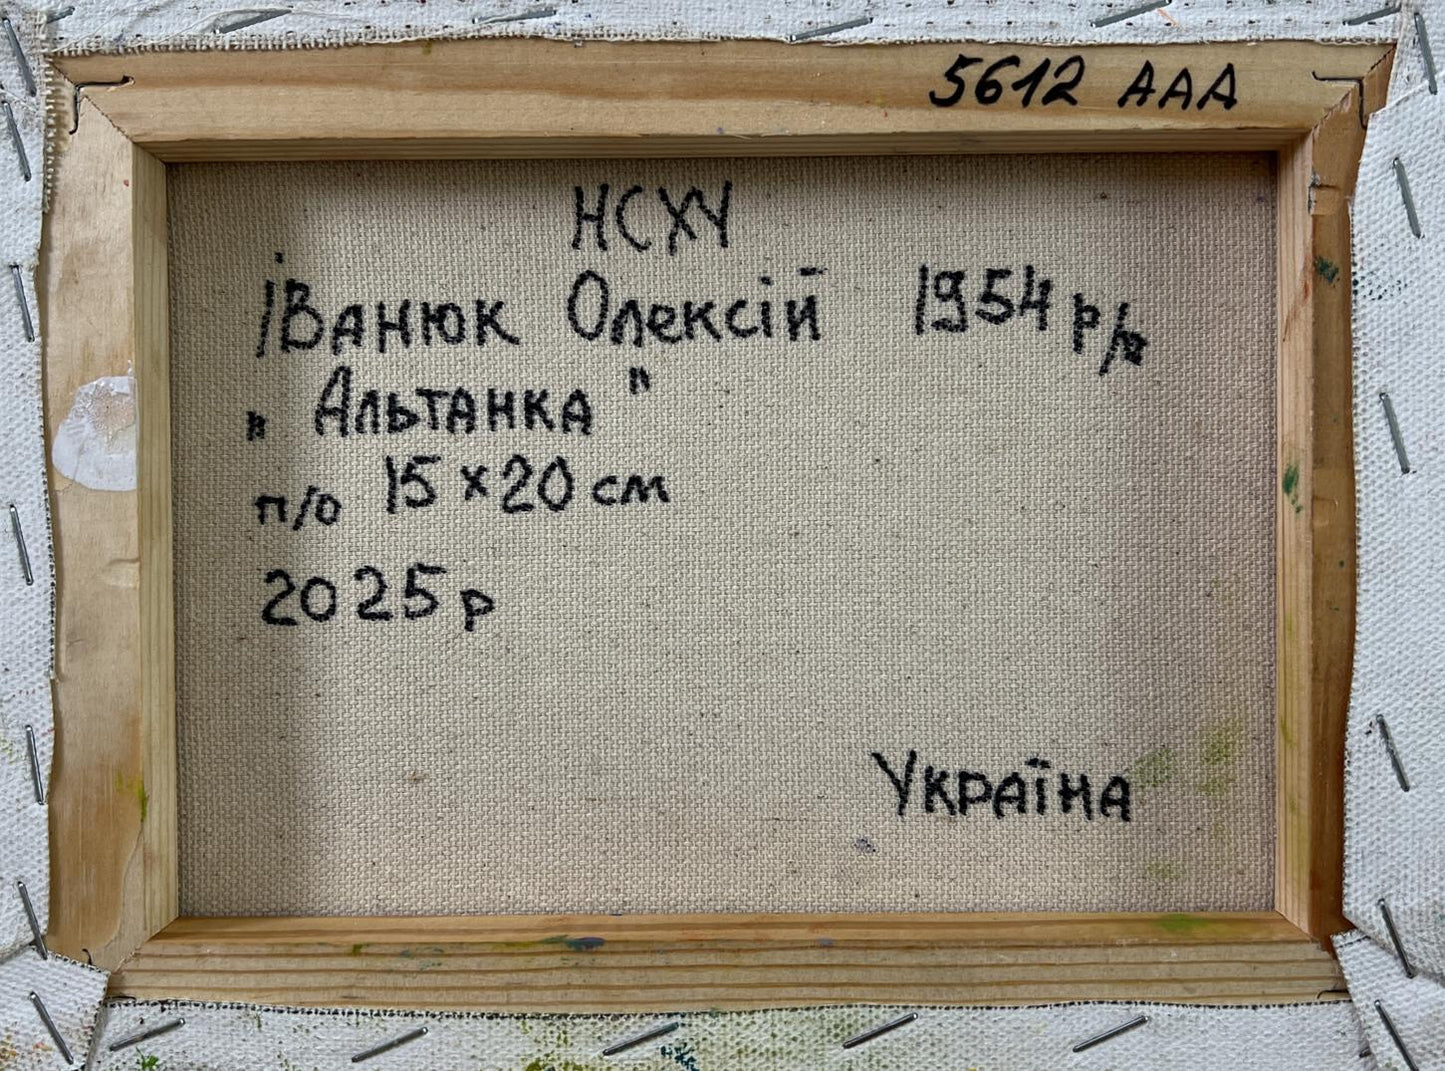 5612 ААА
НСХУ
Іванюк Олексій 1954 р/н
„Альтанка"
п/о 15×20 см
2025 р
Україна